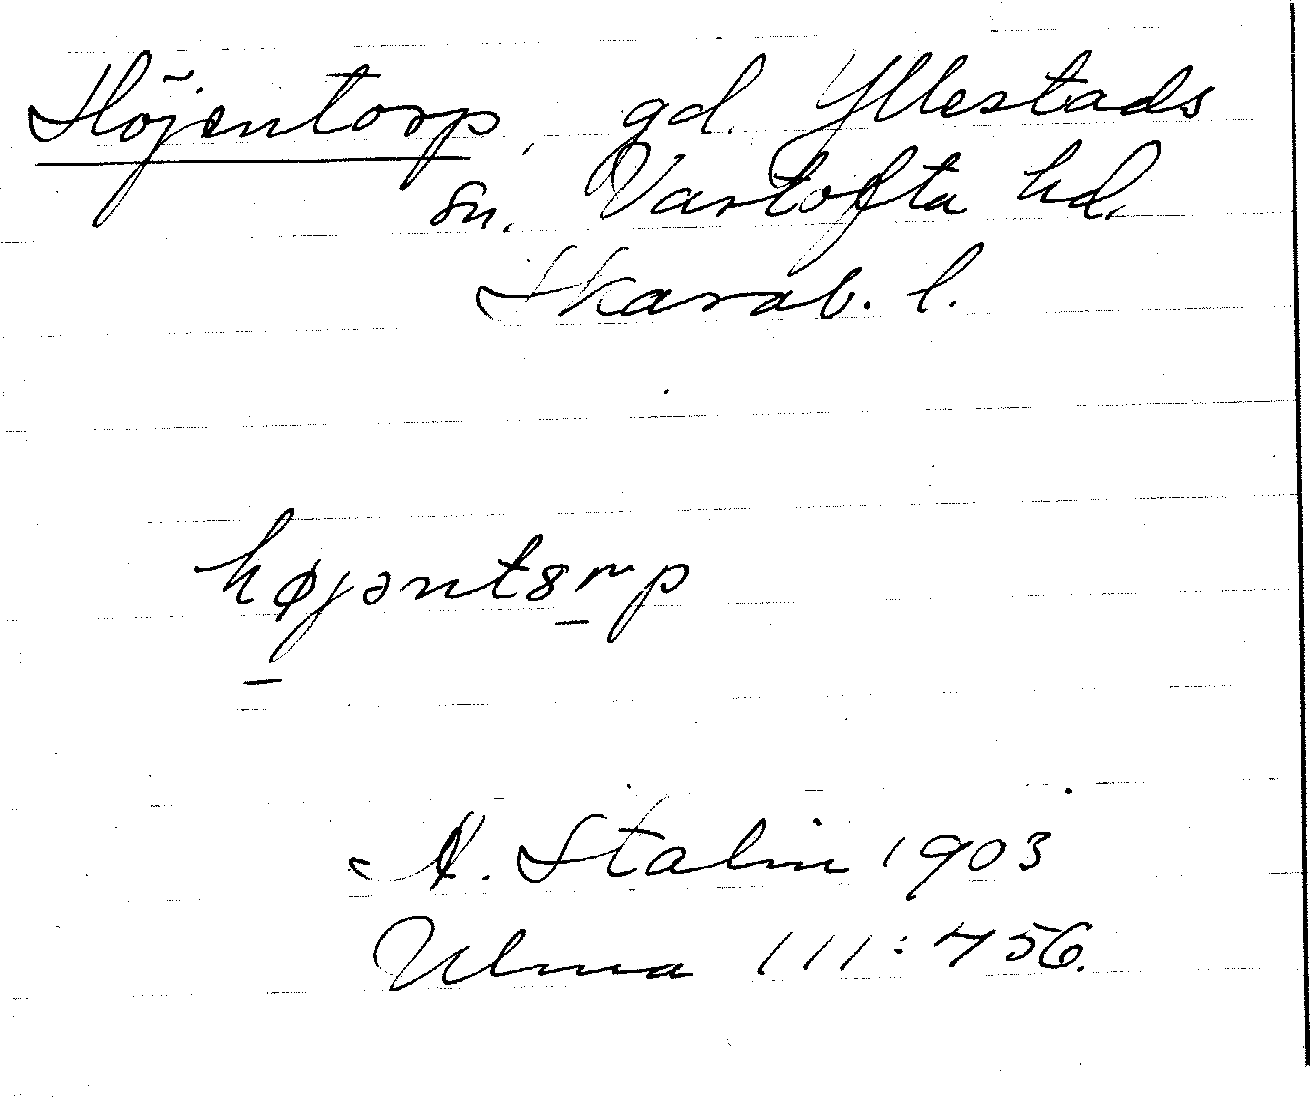 Höjentorp, gd. Yllestads
sn. Vartofta hd.
Skarab. l.
højəntȣrp
A. Stalin 1903
Ulma 111:456.